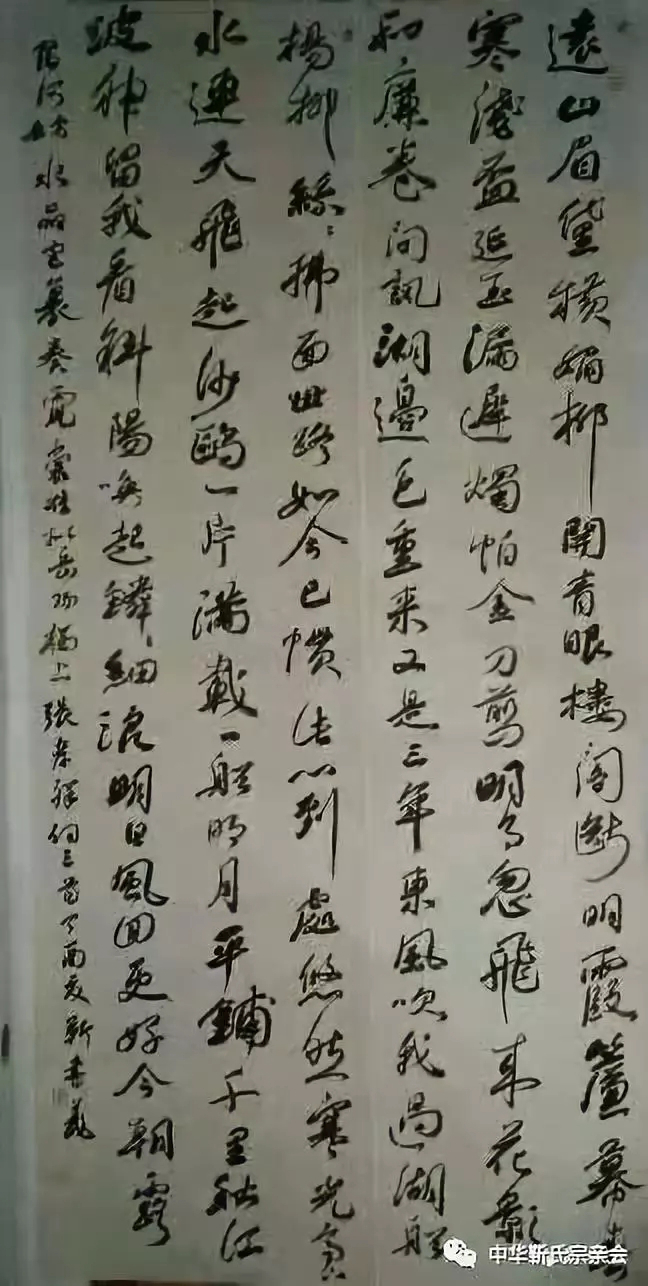 遠山眉黛橫媚柳開青眼樓閣斷明霞簾幕春
寒淺盃延玉漏遲燭怕金刀剪明月忽飛來花影
和廉卷問訊湖邊色重來又是三年東風吹我過湖船
楊柳絲〻拂面世路如今已慣此心到處悠然寒光亭下
水連天飛起沙鷗一片滿載一船明月平鋪千里秋江
波神留我看斜陽喚起鱗〻細浪明日風回更好今朝露
宿何妨水晶宮裏奏霓裳準擬岳陽樓上張孝祥詞三首丁酉夏靳
中华靳氏宗亲会